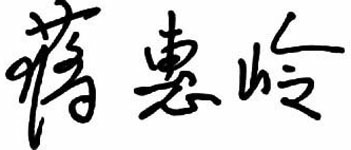 蒋惠岭